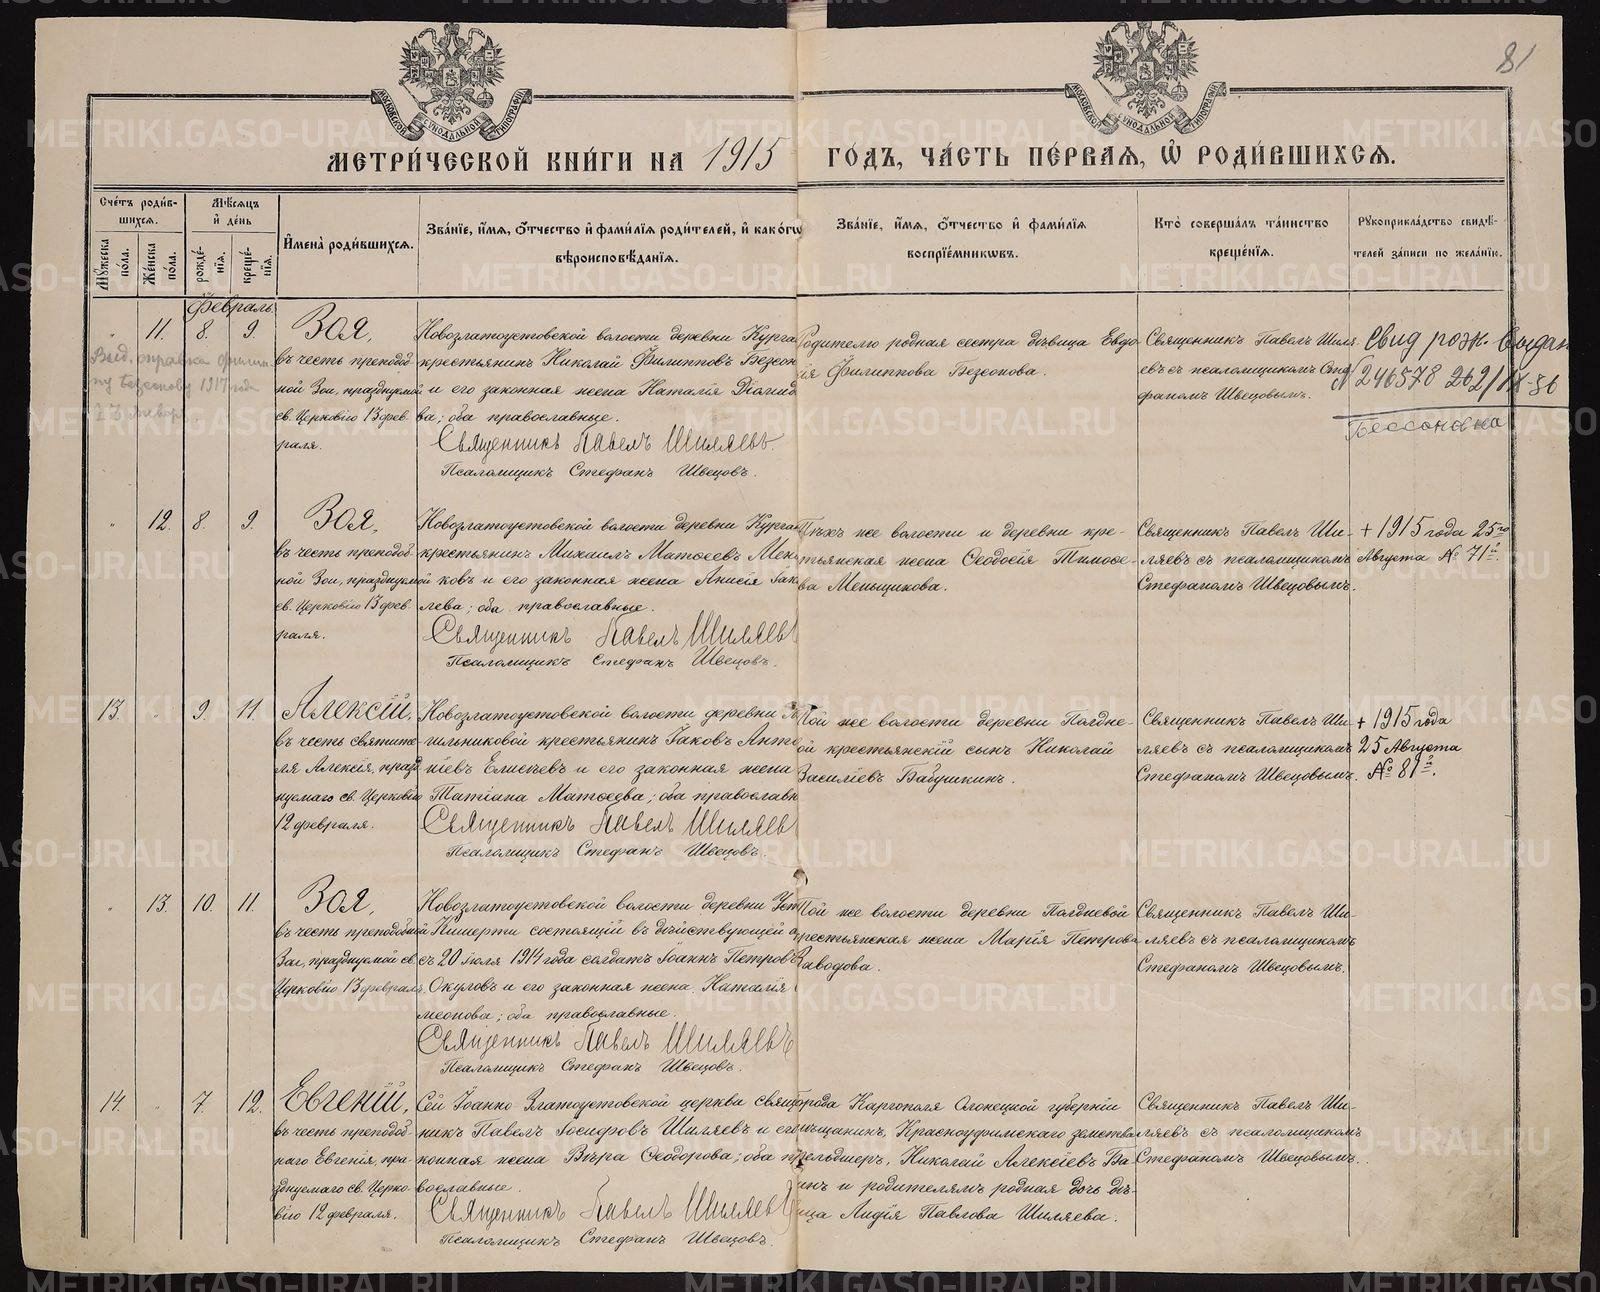 81
МЕТРИ́ЧЕСКОЙ КНИ́ГИ НА 1915 ГО́ДЪ, ЧА́СТЬ ПЕ́РВАѦ, Ѡ҆ РОДИ́ВШИХСѦ.
Счетъ роди́вшихсѧ.
Мꙋжеска по́ла.
Же́нска по́ла.
Мѣ́сѧцъ и҆ де́нь
рожде́нїѧ.
креще́нїѧ.
И҆мена̀ роди́вшихсѧ.
Зва́нїе, и҆́мѧ, ѻ҆́тчество и҆ фами́лїѧ роди́телей, и҆ како́гѡ
вѣроисповѣ́данїѧ.
Зва́нїе, и҆́мѧ, ѻ҆́тчество и҆ фами́лїѧ
воспрїе́мникѡвъ.
Кто̀ соверша́лъ та́инство
креще́нїѧ.
Рꙋкоприкла́дство свидѣ́телей за́писи по жела́нїю.
Февраль.
11. 8. 9.
Зоя,
въ честь преподобной Зои, празднуемой
св. Церковію 13 февраля.
Новозлатоустовской волости деревни Курга
крестьянинъ Николай Филипповъ Безсон
и его законная жена Наталія Діомид
ва; оба православные.
Священникъ Павелъ Шиляевъ.
Псаломщикъ Стефанъ Швецовъ.
Родителю родная сестра дѣвица Евдо
ія Филиппова Безсонова.
Священникъ Павелъ Шиля
евъ съ псаломщикомъ Сте
фаномъ Швецовымъ.
Свид рож. выдан
246578 262/IX-56
Бессонова
12. 8. 9.
Зоя,
въ честь преподобной Зои, празднуемой
св. Церковію 13 февраля.
Новозлатоустовской волости деревни Курга
крестьянинъ Михаилъ Матѳеевъ Мен
ковъ и его законная жена Анисія Іак
лева; оба православные.
Священникъ Павелъ Шиляевъ
Псаломщикъ Стефанъ Швецовъ.
Тѣхъ же волости и деревни кре-
тьянская жена Ѳеодосія Тимоѳе-
ва Меньщикова.
Священникъ Павелъ Ши-
ляевъ съ псаломщикомъ
Стефаномъ Швецовымъ.
+ 1915 года 25го
Августа № 71й.
13. 9. 11.
Алексій,
въ честь святителя Алексія, празднуемаго св. Церковію
12 февраля.
Новозлатоустовской волости деревни
ильниковой крестьянинъ Іаковъ Анто
ніевъ Елисѣевъ и его законная жена
Татіана Матѳеева; оба православн
Священникъ Павелъ Шиляев
Псаломщикъ Стефанъ Швецовъ.
Той же волости деревни Полдне-
ой крестьянскій сынъ Николай
Василіевъ Бабушкинъ.
Священникъ Павелъ Ши-
ляевъ съ псаломщикомъ
Стефаномъ Швецовымъ.
+ 1915 года
25 Августа
№ 81й.
13. 10. 11.
Зоя,
въ честь преподобной
Зои, празднуемой св.
Церковію 13 февраля.
Новозлатоустовской волости деревни Уст
Кишерти состоящій въ дѣйствующей а
съ 20 іюля 1914 года солдатъ Іоаннъ Петровъ
Окуловъ и его законная жена Наталія
меонова; оба православные.
Священникъ Павелъ Шиляевъ
Псаломщикъ Стефанъ Швецовъ.
Той же волости деревни Полдневой
рестьянская жена Марія Петрова
Заводова.
Священникъ Павелъ Ши-
ляевъ съ псаломщикомъ
Стефаномъ Швецовымъ.
14. 7. 12.
Евгеній,
въ честь преподобнаго Евгенія, празднуемаго св. Церковію 12 февраля.
Сей Іоанно Златоустовской церкви свящ
никъ Павелъ Іосифовъ Шиляевъ и его
конная жена Вѣра Ѳеодорова; оба п
вославные.
Священникъ Павелъ Шиляев
Псаломщикъ Стефанъ Швецовъ.
города Каргополя Олонецкой губерніи
мѣщанинъ, Красноуфимскаго земства
фельдшеръ, Николай Алексіевъ Ба-
инъ и родителямъ родная дочь дѣ-
ица Лидія Павлова Шиляева.
Священникъ Павелъ Ши-
ляевъ съ псаломщикомъ
Стефаномъ Швецовымъ.